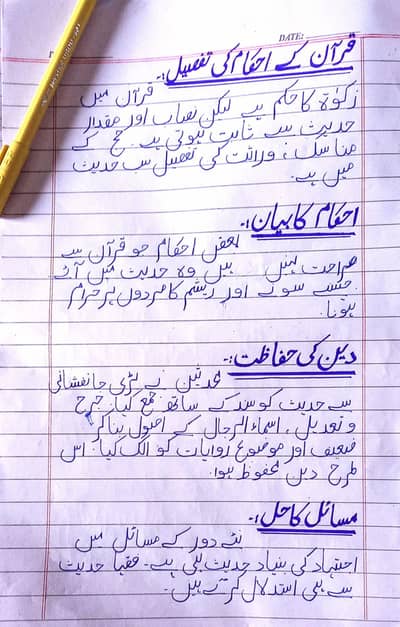 DATE:
قرآن کے احکام کی تفصیل:-
قرآن میں
زکوٰۃ کا حکم ہے لیکن نصاب اور مقدار
حدیث سے ثابت ہوتی ہے۔ حج کے
مناسک، وراثت کی تفصیل سب حدیث
میں ہے۔
احکام کا بیان:-
بعض احکام جو قرآن سے
صراحت نہیں ہیں وہ حدیث میں آئے
جیسے سونے اور ریشم کا مردوں پر حرام
ہونا۔
دین کی حفاظت:-
محدثین نے بڑی جانفشانی
سے حدیث کو سند کے ساتھ جمع کیا۔ جرح
و تعدیل، اسماء الرجال کے اصول بنا کر
ضعیف اور موضوع روایات کو الگ کیا۔ اس
طرح دین محفوظ ہوا۔
مسائل کا حل:-
نئے دور کے مسائل میں
اجتہاد کی بنیاد حدیث ہی ہے۔ فقہا حدیث
سے ہی استدلال کرتے ہیں۔